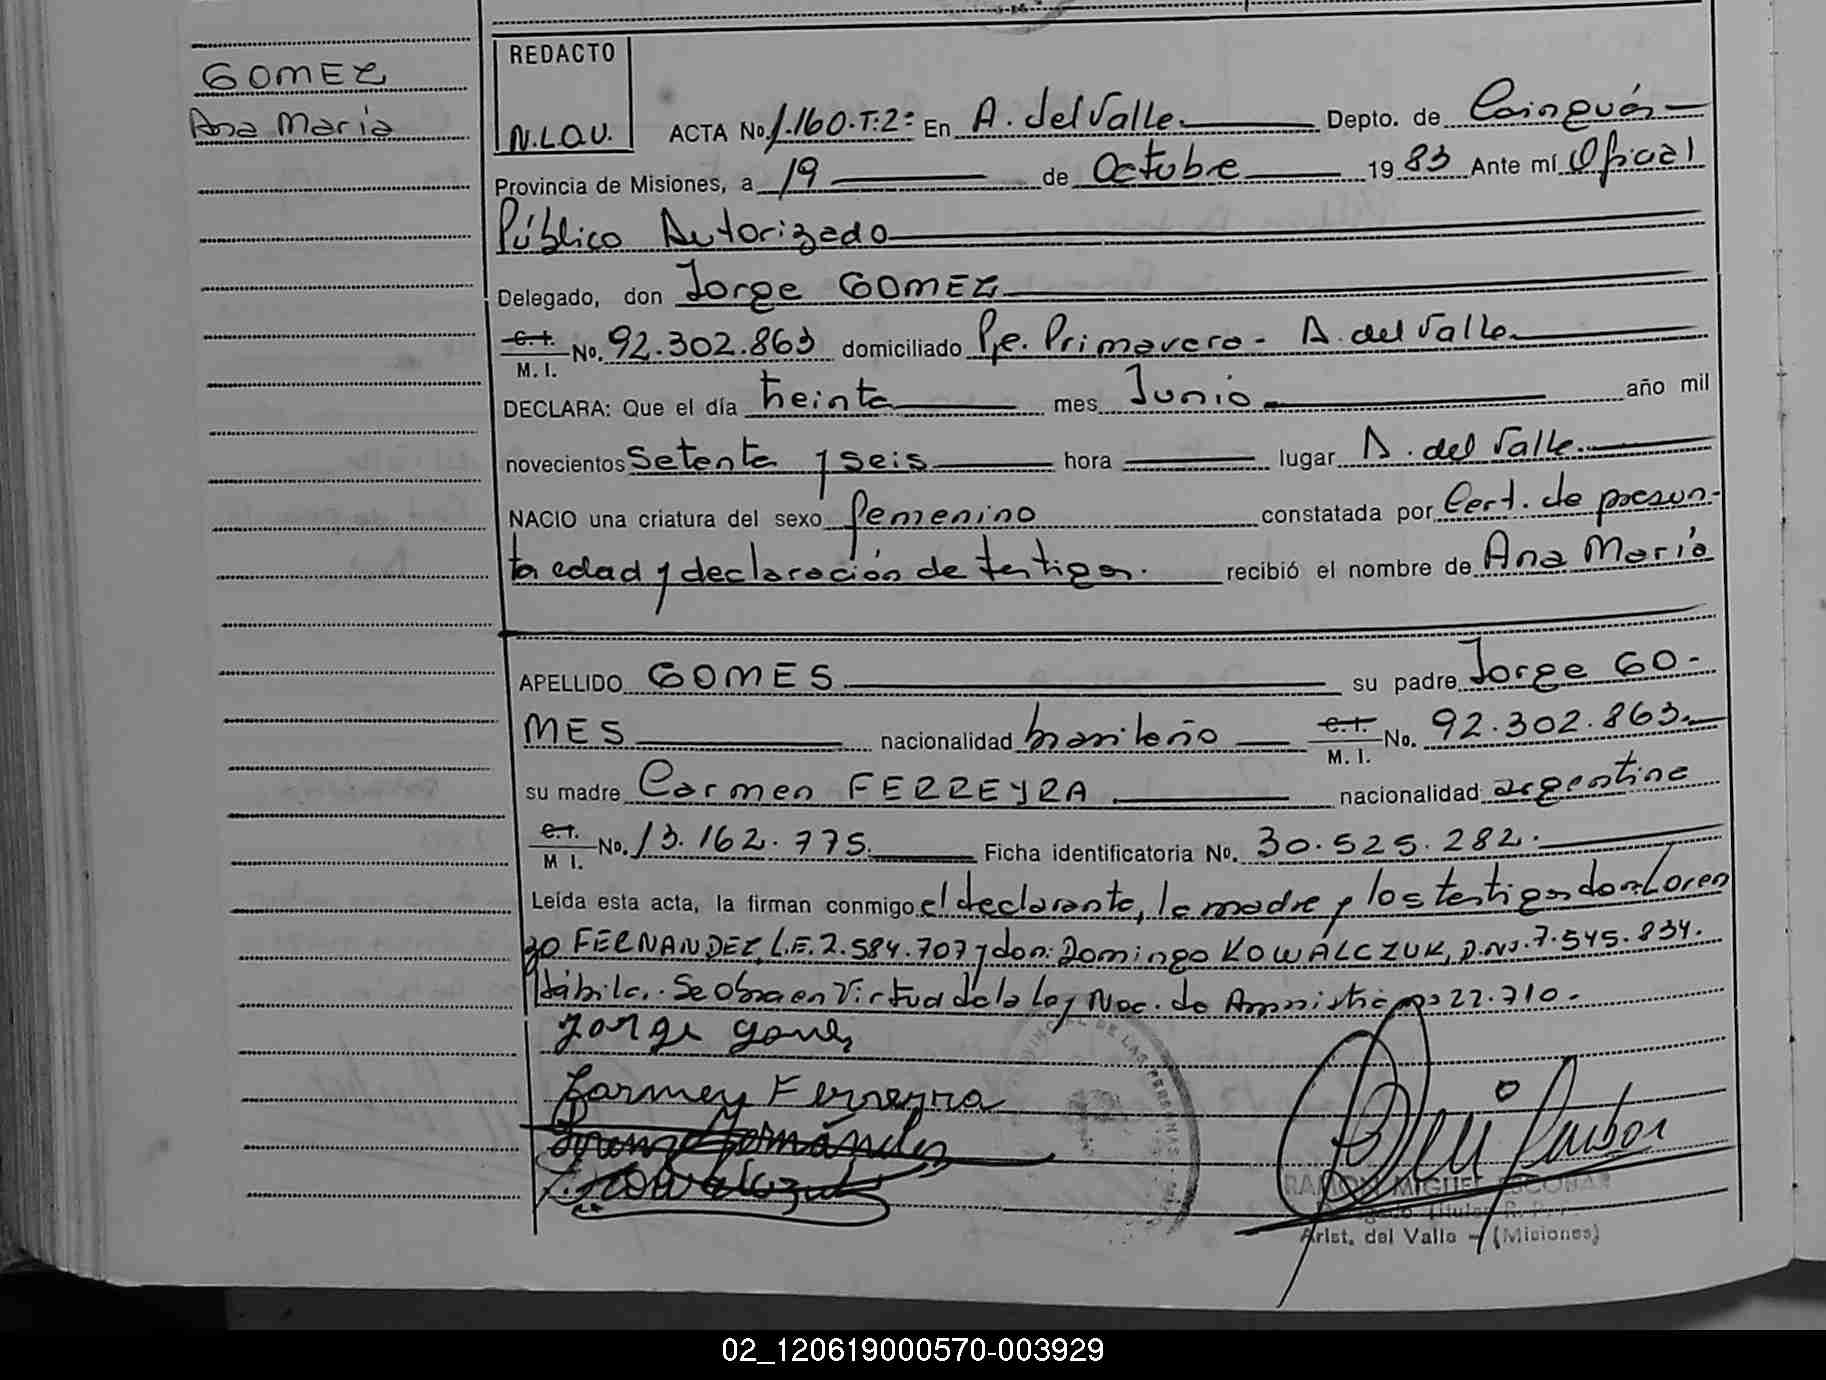 GOMEZ
Ana María
REDACTO
N.L.Q.U.
ACTA No. 1.160.T:2º En A. del Valle Depto. de Cainguás
Provincia de Misiones, a 19 de Octubre 1983 Ante mí Oficial
Público Autorizado
Delegado, don Jorge GOMEZ
C.I. M. I. No. 92.302.863 domiciliado Pje. Primavera - A. del Valle
DECLARA: Que el día treinta mes Junio año mil
novecientos setenta y seis hora lugar A. del Valle.
NACIO una criatura del sexo femenino constatada por Cert. de presun-
ta edad y declaración de testigos. recibió el nombre de Ana María
APELLIDO GOMES su padre Jorge GO-
MES nacionalidad brasileño C.I. M. I. No. 92.302.863
su madre Carmen FERREYRA nacionalidad argentina
C.I. M I. No. 13.162.775. Ficha identificatoria No. 30.525.282.
Leída esta acta, la firman conmigo el declarante, la madre y los testigos don: Loren
zo FERNANDEZ, L.E. 2.584.707 y don: Domingo KOWALCZUK, D.N.I. 7.545.834.
Hábiles. Se obra en Virtud de la Ley Nac. de Amnistía nº 22.710.-
Jorge Gomes
Carmen Ferreyra
Lorenzo Fernández
Kowalczuk
RAMON MIGUEL ESCOBAR
Titular R. P.
Arist. del Valle - (Misiones)
02_120619000570-003929